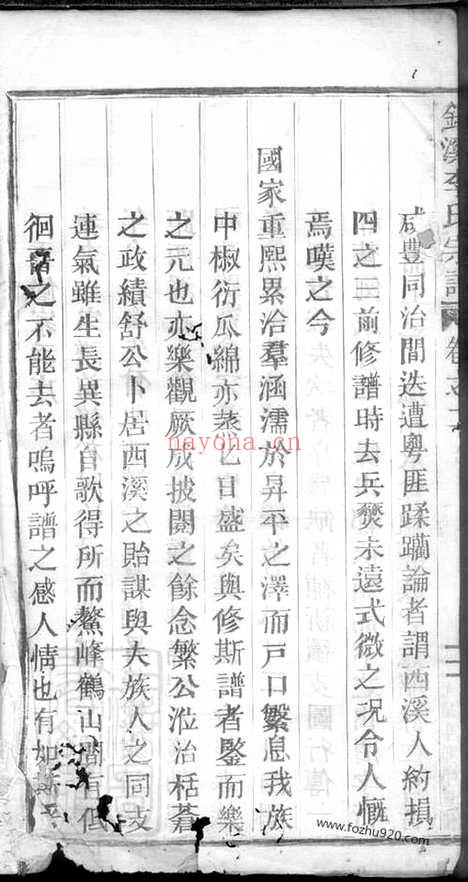 咸豐同治間迭遭粵匪蹂躪論者謂西溪人約損
四之三前修譜時去兵燹未遠式微之况令人慨
焉嘆之今
國家重熙累洽羣涵濡於昇平之澤而戸口繁息我族
中椒衍瓜綿亦蒸乙日盛矣與修斯譜者鑒而樂
之元也亦樂觀厥成披閱之餘念繁公涖治栝蒼
之政績舒公卜居西溪之貽謀與夫族人之同支
連氣雖生長異縣自歌得所而鰲峰鶴山間有低
徊之不能去者嗚呼譜之感人情也有如
溪李氏宗譜
卷之
nayona.cn
www.fozhu920.com